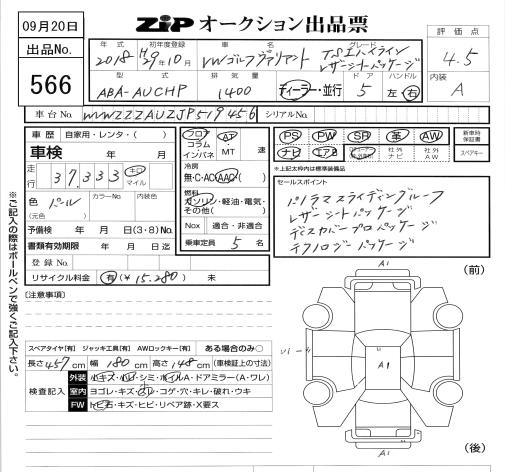 09月20日
ZIP オークション出品票
出品No.
566
年式 初年度登録 車名 グレード
2018 H29年10月 VWゴルフヴァリアント TSIハイライン レザーシートパッケージ
型式 排気量 ドア ハンドル
ABA-AUCHP 1400 ディーラー・並行 5 左・右
評価点
4.5
内装
A
車台No. WVWZZZAUZJP519456 シリアルNo.
車歴 自家用・レンタ・( )
車検 年 月
走行 37,333 キロ マイル
色 パール (元色) カラーNo. 内装色
予備検 年 月 日(3・8)No.
書類有効期限 年 月 日迄
登録No.
リサイクル料金 有(¥15,280) 未
フロア コラム インパネ AT・MT 速
冷房
無・C・AC・AAC
燃料
ガソリン・軽油・電気・その他( )
Nox 適合・非適合
乗車定員 5 名
PS PW SR 革 AW
ナビ エアB 社外ナビ 社外AW
新車時保証書
スペアキー
*上記太枠内は標準装備品
セールスポイント
パノラマスライディングルーフ
レザーシートパッケージ
ディスカバープロパッケージ
テクノロジーパッケージ
※ご記入の際はボールペンで強くご記入下さい。
[注意事項]
スペアタイヤ[有] ジャッキ工具[有] AWロックキー[有] ある場合のみ○
長さ 457 cm 幅 180 cm 高さ 148 cm (車検証上の寸法)
検査記入
外装 小キズ・凹・シミ・ホイルA・ドアミラー(A・ワレ)
室内 ヨゴレ・キズ・スレ・コゲ・穴・キレ・破れ・ウキ
FW トビ石・キズ・ヒビ・リペア跡・X要ス
A1
(前)
A1
A1
(後)